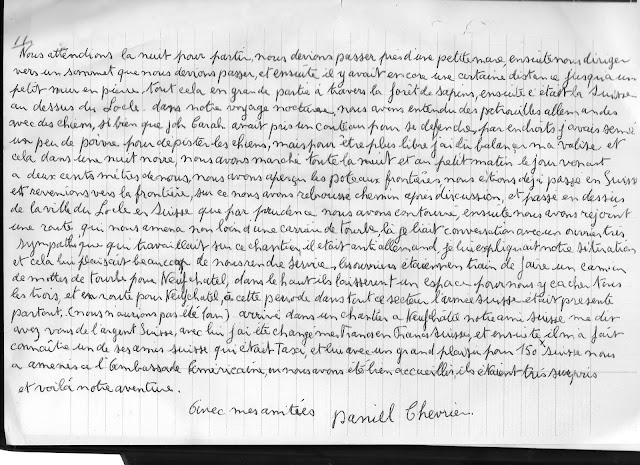 Nous attendions la nuit pour partir, nous devions passer près d'une petite mare, ensuite nous diriger
vers un sommet que nous devions passer, et ensuite il y avait encore une certaine distance jusqu'a un
petit mur en pierre tout cela en grande partie à travers la forêt de sapins, ensuite c'était la Suisse
au dessus du Locle. dans notre voyage nocturne, nous avons entendu des patrouilles allemandes
avec des chiens, si bien que Joh Carah avait pris un couteau pour se défendre, par endroits j'avais semé
un peu de poivre pour dépister les chiens, mais pour être plus libre j'ai dû balancer ma valise et
cela dans une nuit noire, nous avons marché toute la nuit et au petit matin le jour venant
a deux cents mètres de nous, nous avons aperçu les poteaux frontières, nous étions déjà passé en Suisse
et revenions vers la frontière, sur ce nous avons rebroussé chemin après discussion, et passé en dessus
de la ville du Locle en Suisse que par prudence nous avons contourné, ensuite nous avons rejoint
une route qui nous amena non loin d'une carrière de tourbe, là je liait conversation avec un ouvrier très
sympathique qui travaillait sur ce chantier, il était anti allemand je lui expliquait notre situation
et cela lui plaisait beaucoup de nous rendre service, les ouvriers étaient en train de faire un camion
de mottes de tourbe pour Neufchatel, dans le haut ils laissèrent un espace pour nous y cacher tous
les trois, et en route pour Neufchatel, à cette période dans tout ce secteur l'armée suisse était présente
partout, (nous n'aurions pas été loin) arrivé dans un chantier a Neufchâtel notre ami suisse me dit
avez vous de l'argent Suisse, avec lui j'ai été changé mes Francs en Francs Suisse, et ensuite il m'a fait
connaître un de ses amis suisse qui était Taxi, et lui avec un grand plaisir pour 150 Suisse nous
a amenés a l'Ambassade Américaine, ou nous avons été bien accueillis, ils étaient très surpris
et voilà notre aventure.
Avec mes amitiés Daniel Chevrier.